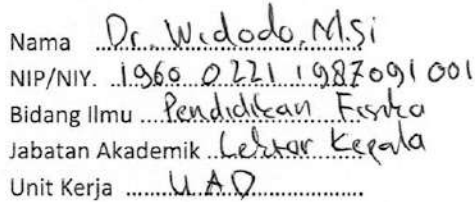 Nama Dr. Widodo, M.Si
NIP/NIY. 1960 0221 198709 1 001
Bidang Ilmu Pendidikan Fisika
Jabatan Akademik Lektor Kepala
Unit Kerja UAD